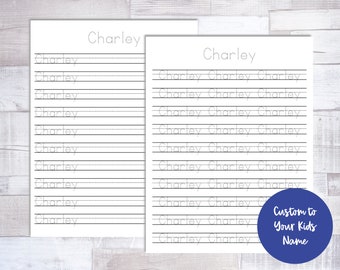 Charley
Charley
Charley
Charley
Charley
Charley
Charley
Charley
Charley
Charley
Charley
Charley
Charley Charley Charley
Charley Charley Charley
Charley Charley Charley
Charley Charley Charley
Charley Charley Charley
Charley Charley Charley
Charley Charley Charley
Charley Charley Charley
Charley Charley Charley
Charley Charley
Custom to
Your Kids
Name